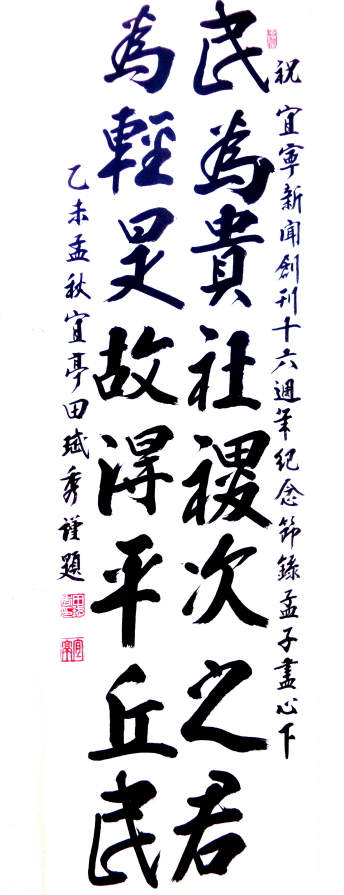 祝 宜寧新聞創刊十六週年紀念節錄孟子盡心下
民為貴社稷次之君
為輕是故得平丘民
乙未孟秋宜亭田秀謹題